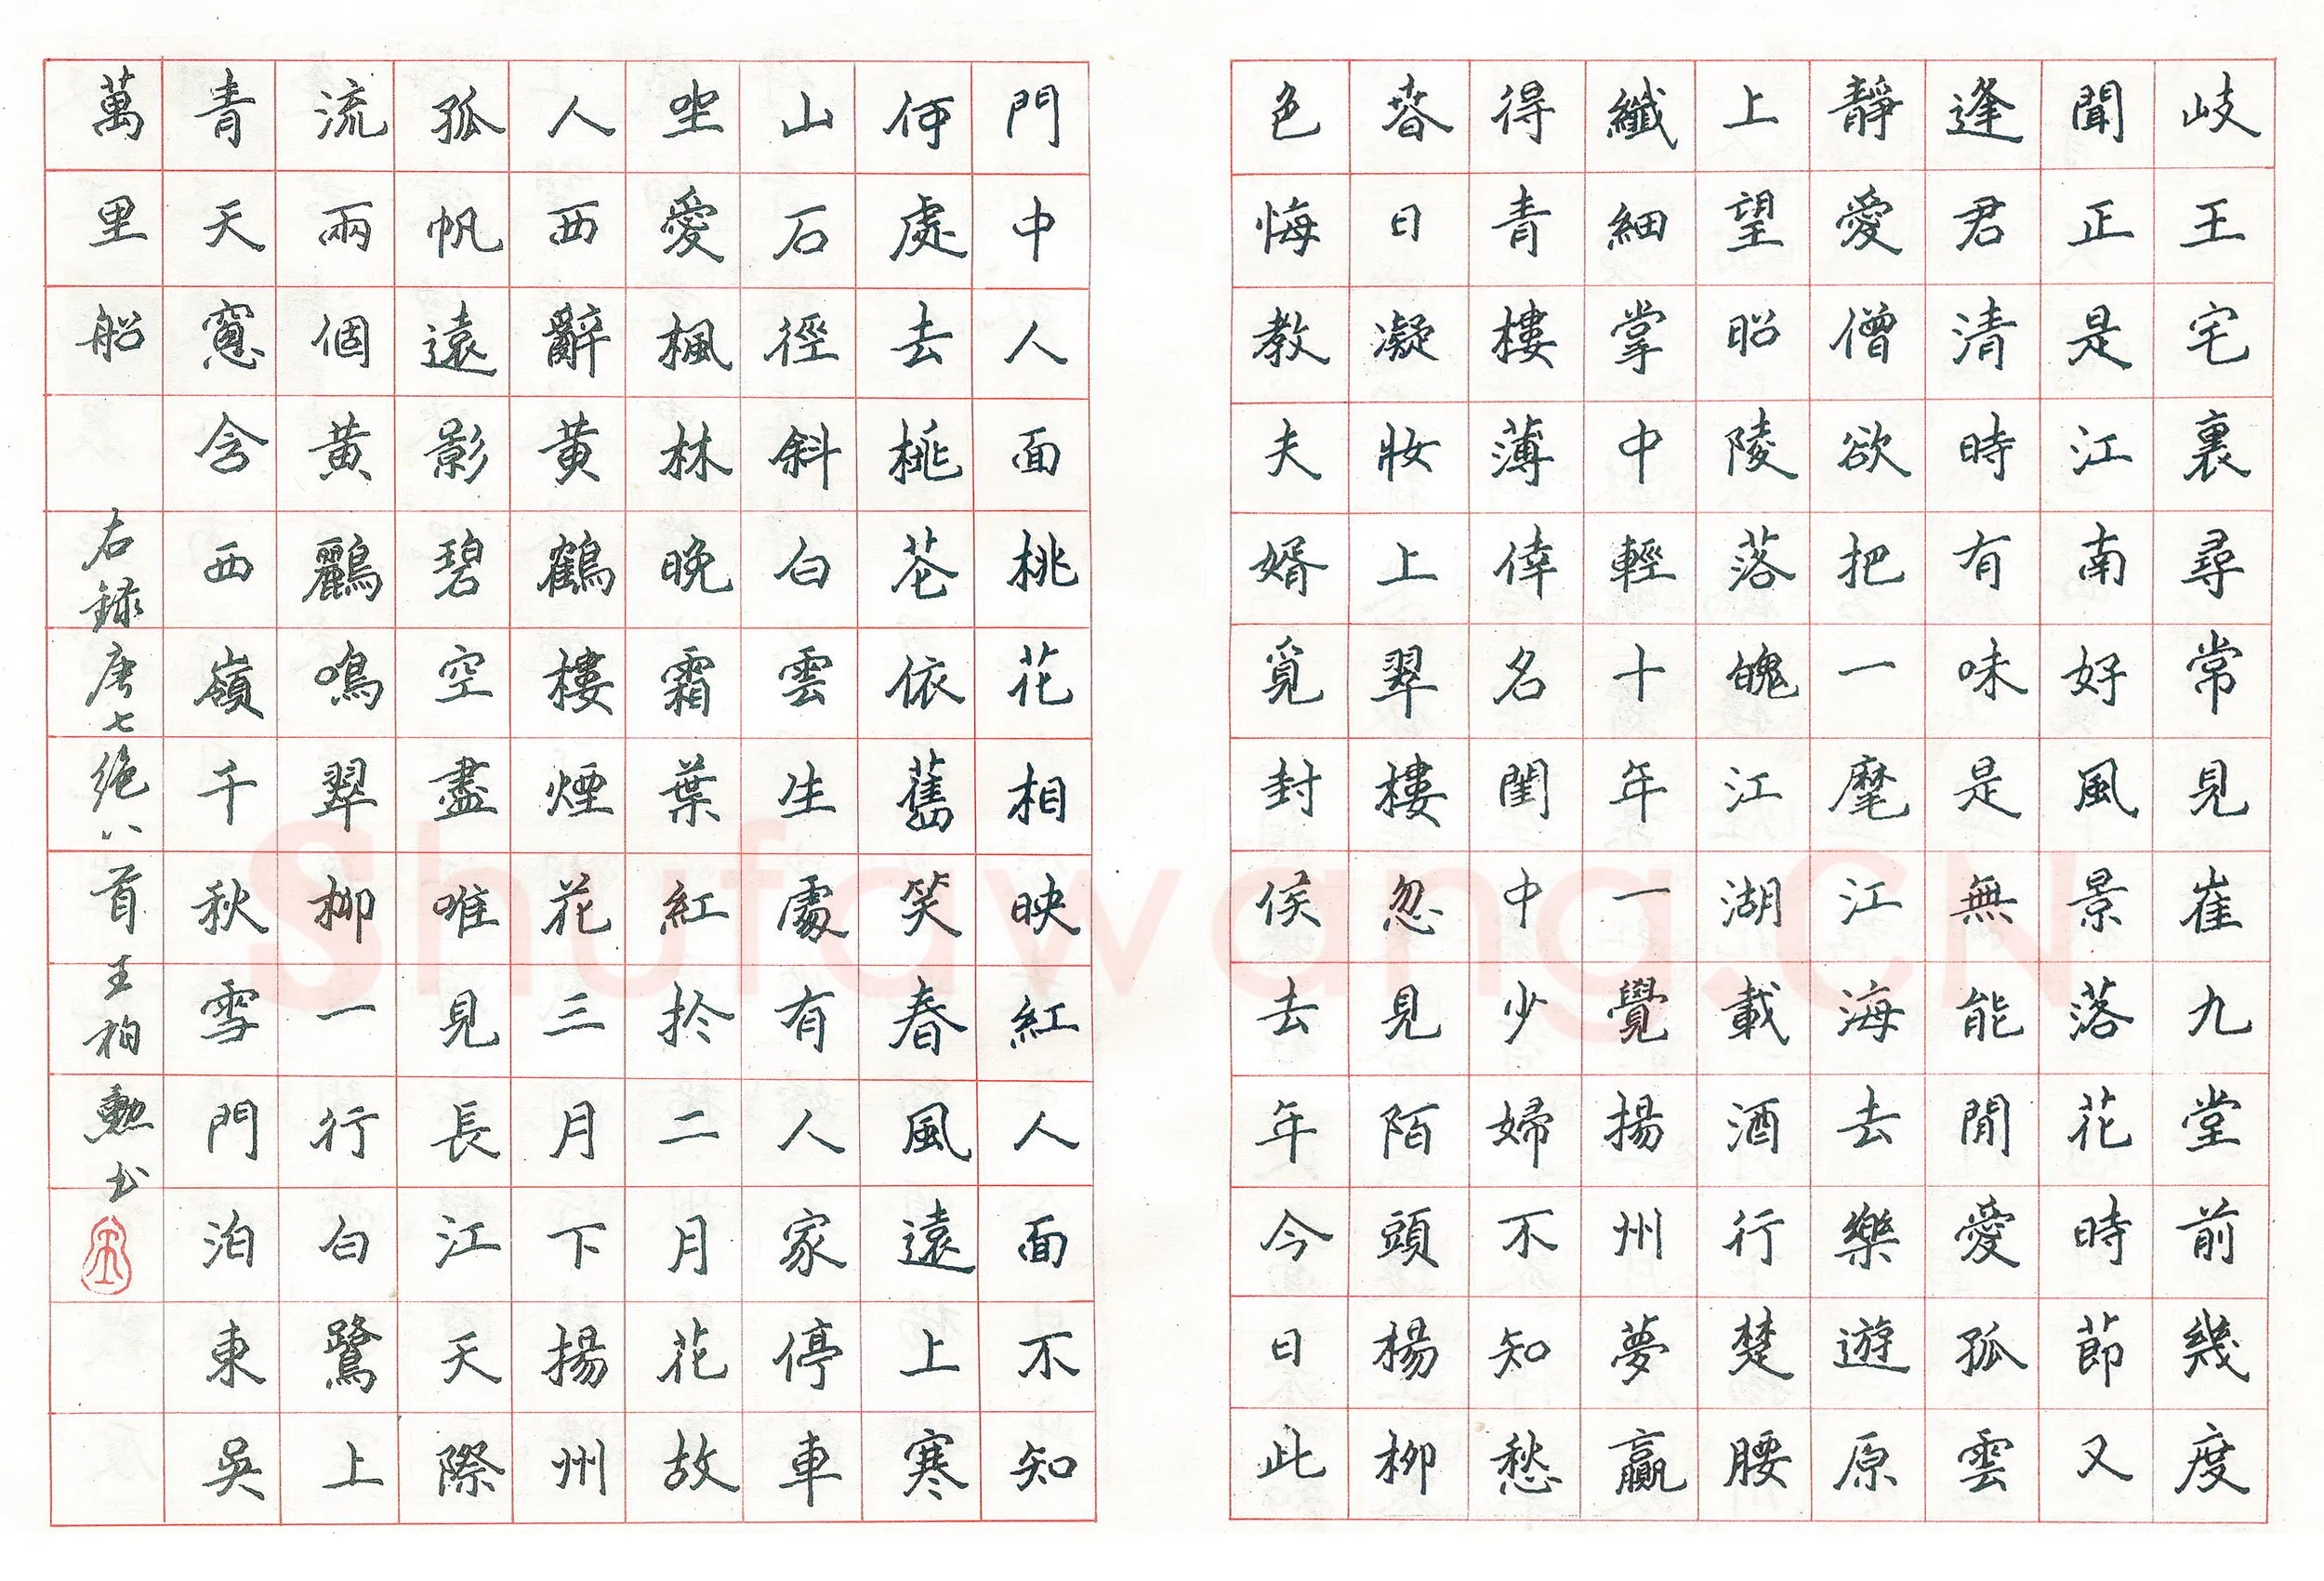 岐王宅裏尋常見崔九堂前幾度
聞正是江南好風景落花時節又
逢君清時有味是無能閒愛孤雲
靜愛僧欲把一麾江海去樂遊原
上望昭陵落魄江湖載酒行楚腰
纖細掌中輕十年一覺揚州夢贏
得青樓薄倖名閨中少婦不知愁
春日凝妝上翠樓忽見陌頭楊柳
色悔教夫婿覓封侯去年今日此
門中人面桃花相映紅人面不知
何處去桃花依舊笑春風遠上寒
山石徑斜白雲生處有人家停車
坐愛楓林晚霜葉紅於二月花故
人西辭黃鶴樓煙花三月下揚州
孤帆遠影碧空盡唯見長江天際
流兩個黃鸝鳴翠柳一行白鷺上
青天窻含西嶺千秋雪門泊東吳
萬里船
右錄唐七绝八首王柏勳书
Shufawang.CN